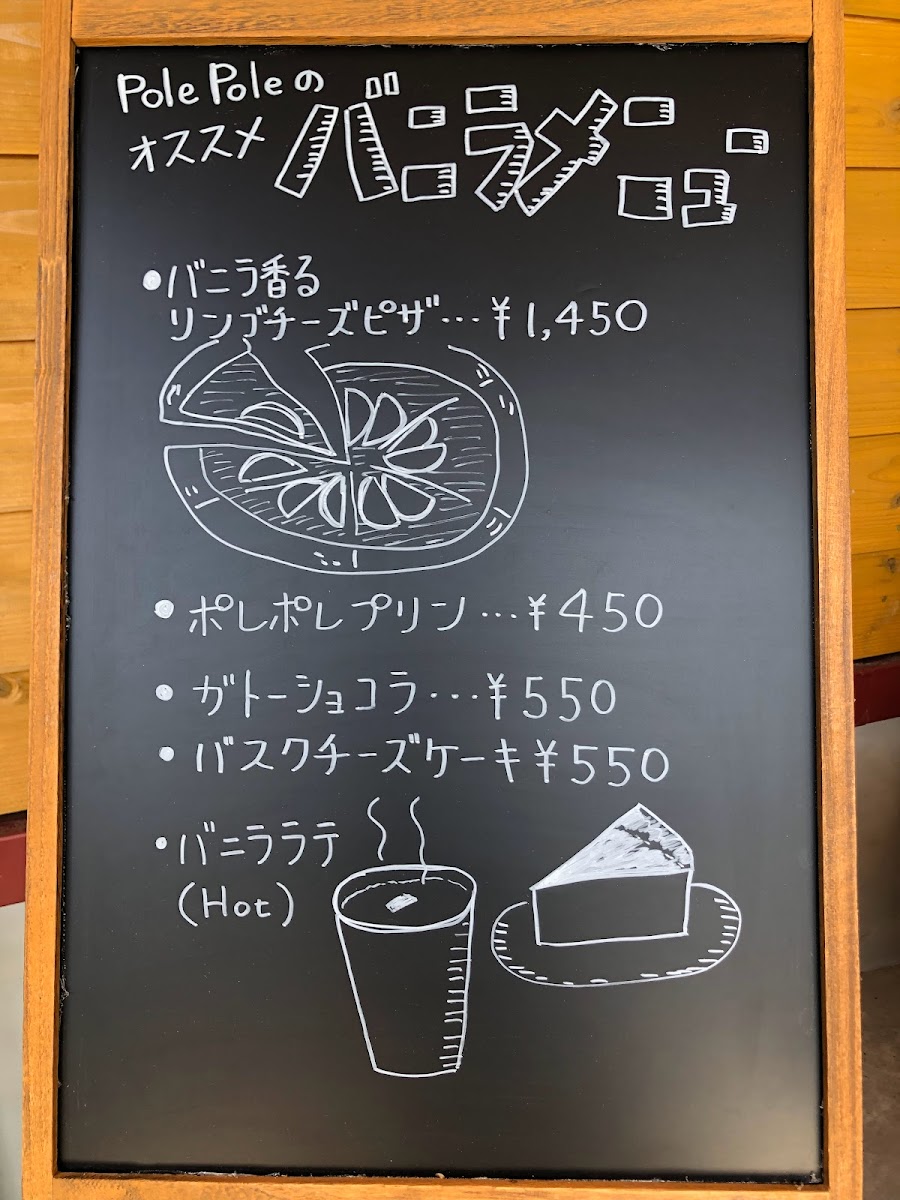 Pole Poleの
オススメ
バニラメニュー
•バニラ香る
リンゴチーズピザ…¥1,450
•ポレポレプリン…¥450
•ガトーショコラ…¥550
•バスクチーズケーキ¥550
•バニララテ
(Hot)